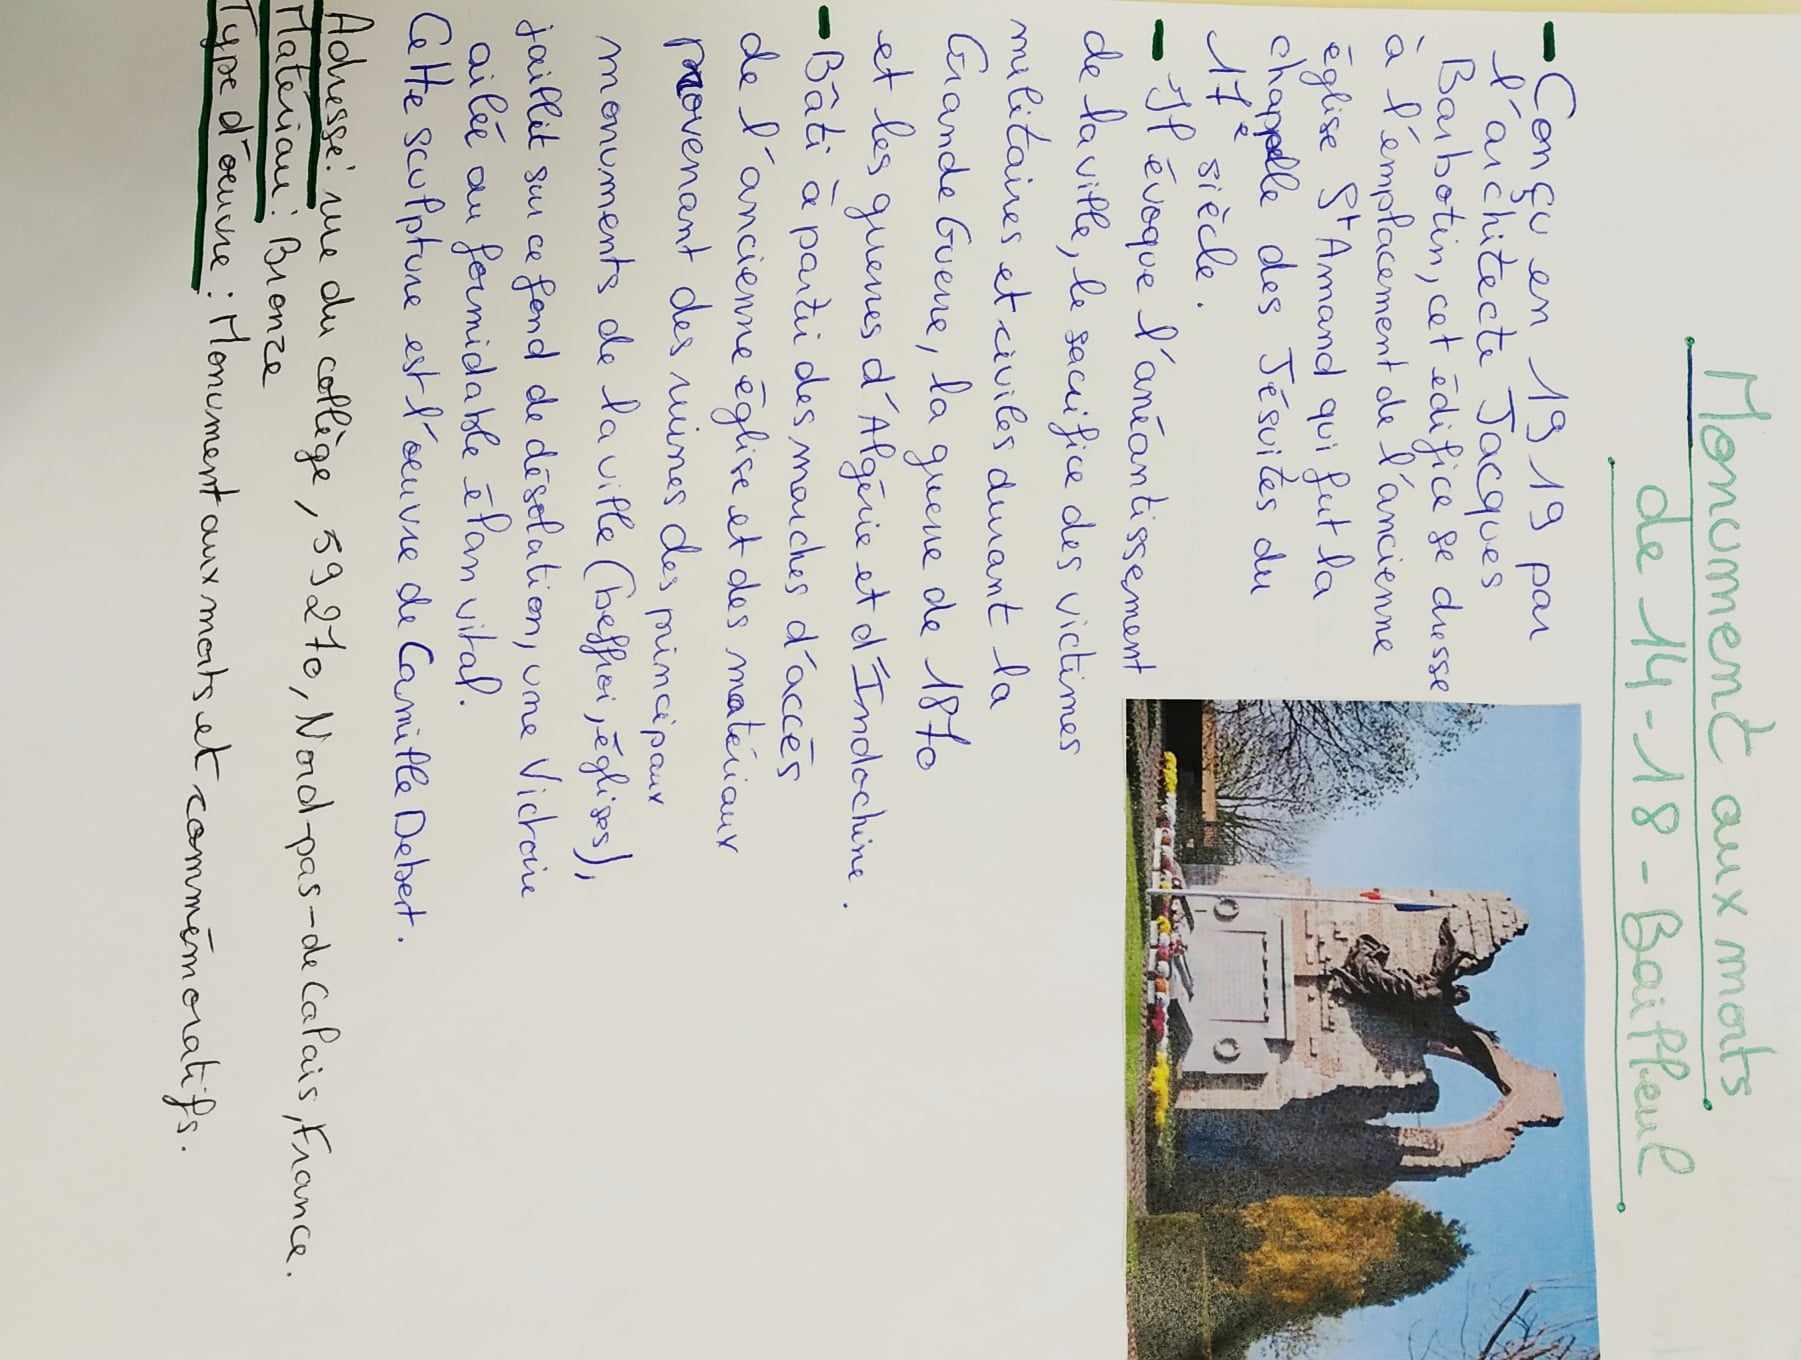 Monument aux morts
de 14-18 - Bailleul
- Conçu en 1919 par
l'architecte Jacques
Barbotin, cet édifice se dresse
à l'emplacement de l'ancienne
église St Amand qui fut la
chappelle des Jésuites du
17e siècle.
- Il évoque l'anéantissement
de la ville, le sacrifice des victimes
militaires et civiles durant la
Grande Guerre, la guerre de 1870
et les guerres d'Algérie et d'Indochine.
- Bâti à partir des marches d'accès
de l'ancienne église et des matériaux
provenant des ruines des principaux
monuments de la ville (beffroi, églises),
jaillit sur ce fond de désolation, une Victoire
ailée au formidable élan vital.
Cette sculpture est l'oeuvre de Camille Debert.
Adresse: rue du collège, 59270, Nord-pas-de Calais, France.
Matériau: Bronze
Type d'oeuvre: Monument aux morts et commémoratifs.